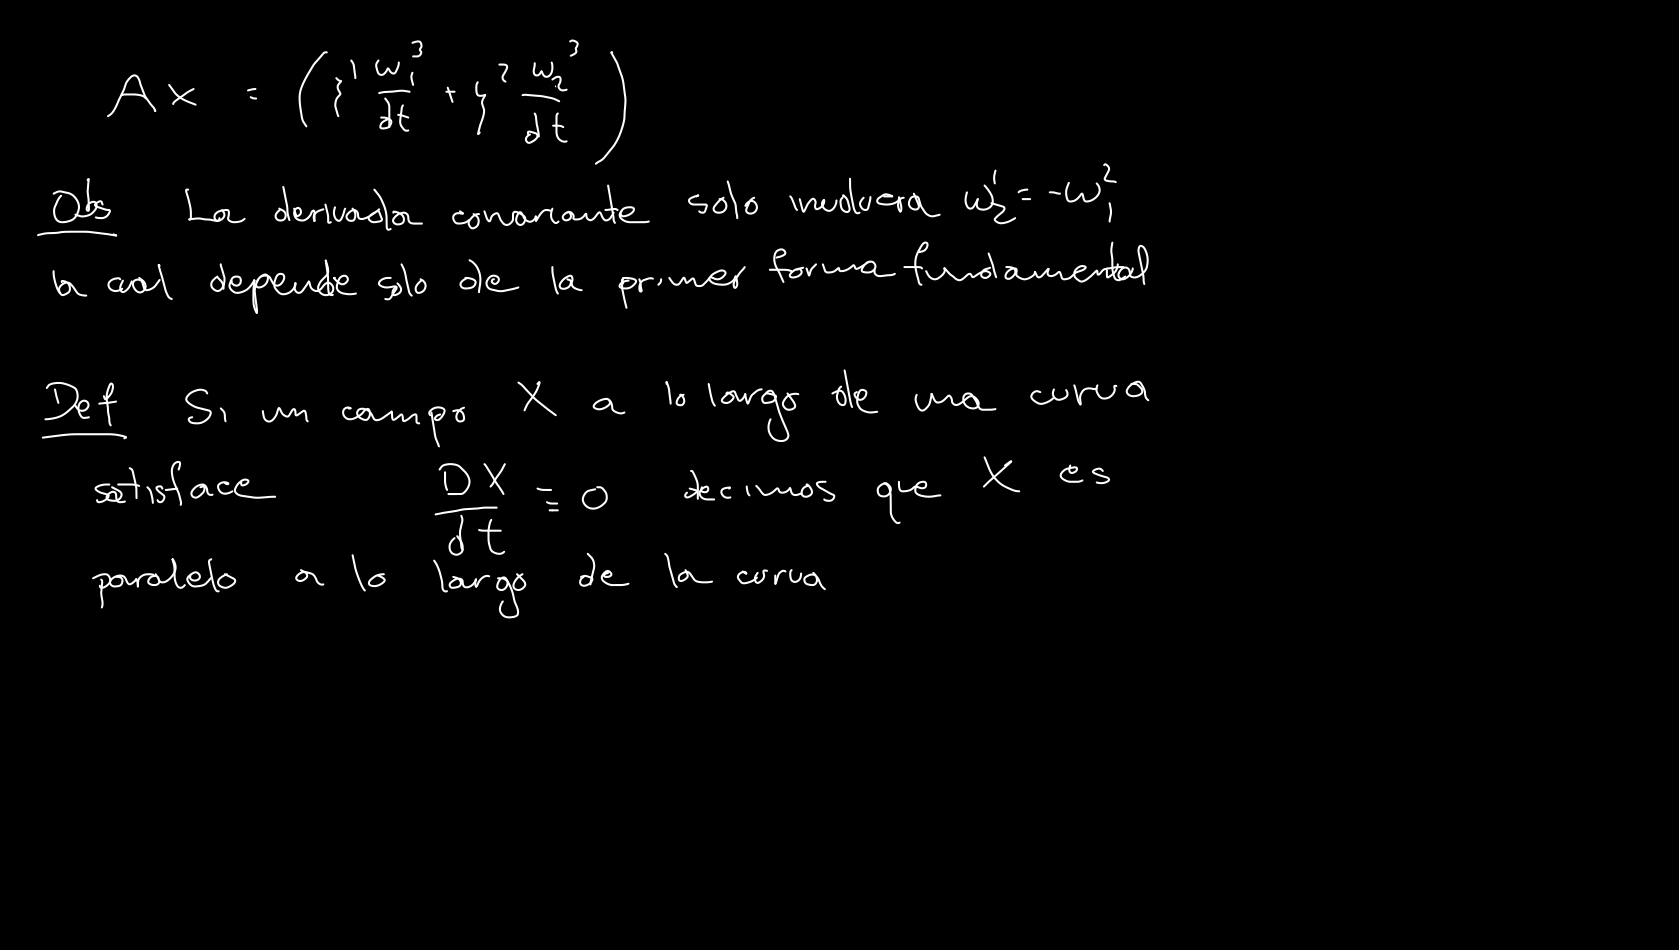 Ax = ( ξ¹ ω₁³/dt + ξ² ω₂³/dt )
Obs La derivada covariante solo involucra ω₂¹ = -ω₁²
la cual depende solo de la primer forma fundamental
Def Si un campo X a lo largo de una curva
satisface DX/dt ≡ 0 decimos que X es
paralelo a lo largo de la curva